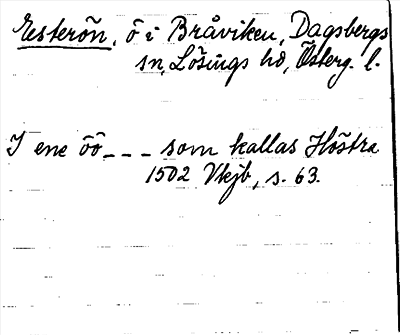 Esterön, ö i Bråviken, Dagsbergs
sn, Lösings hd, Österg. l.
I ene öö - - - som kallas Höstra
1502 Vkjb, s. 63.